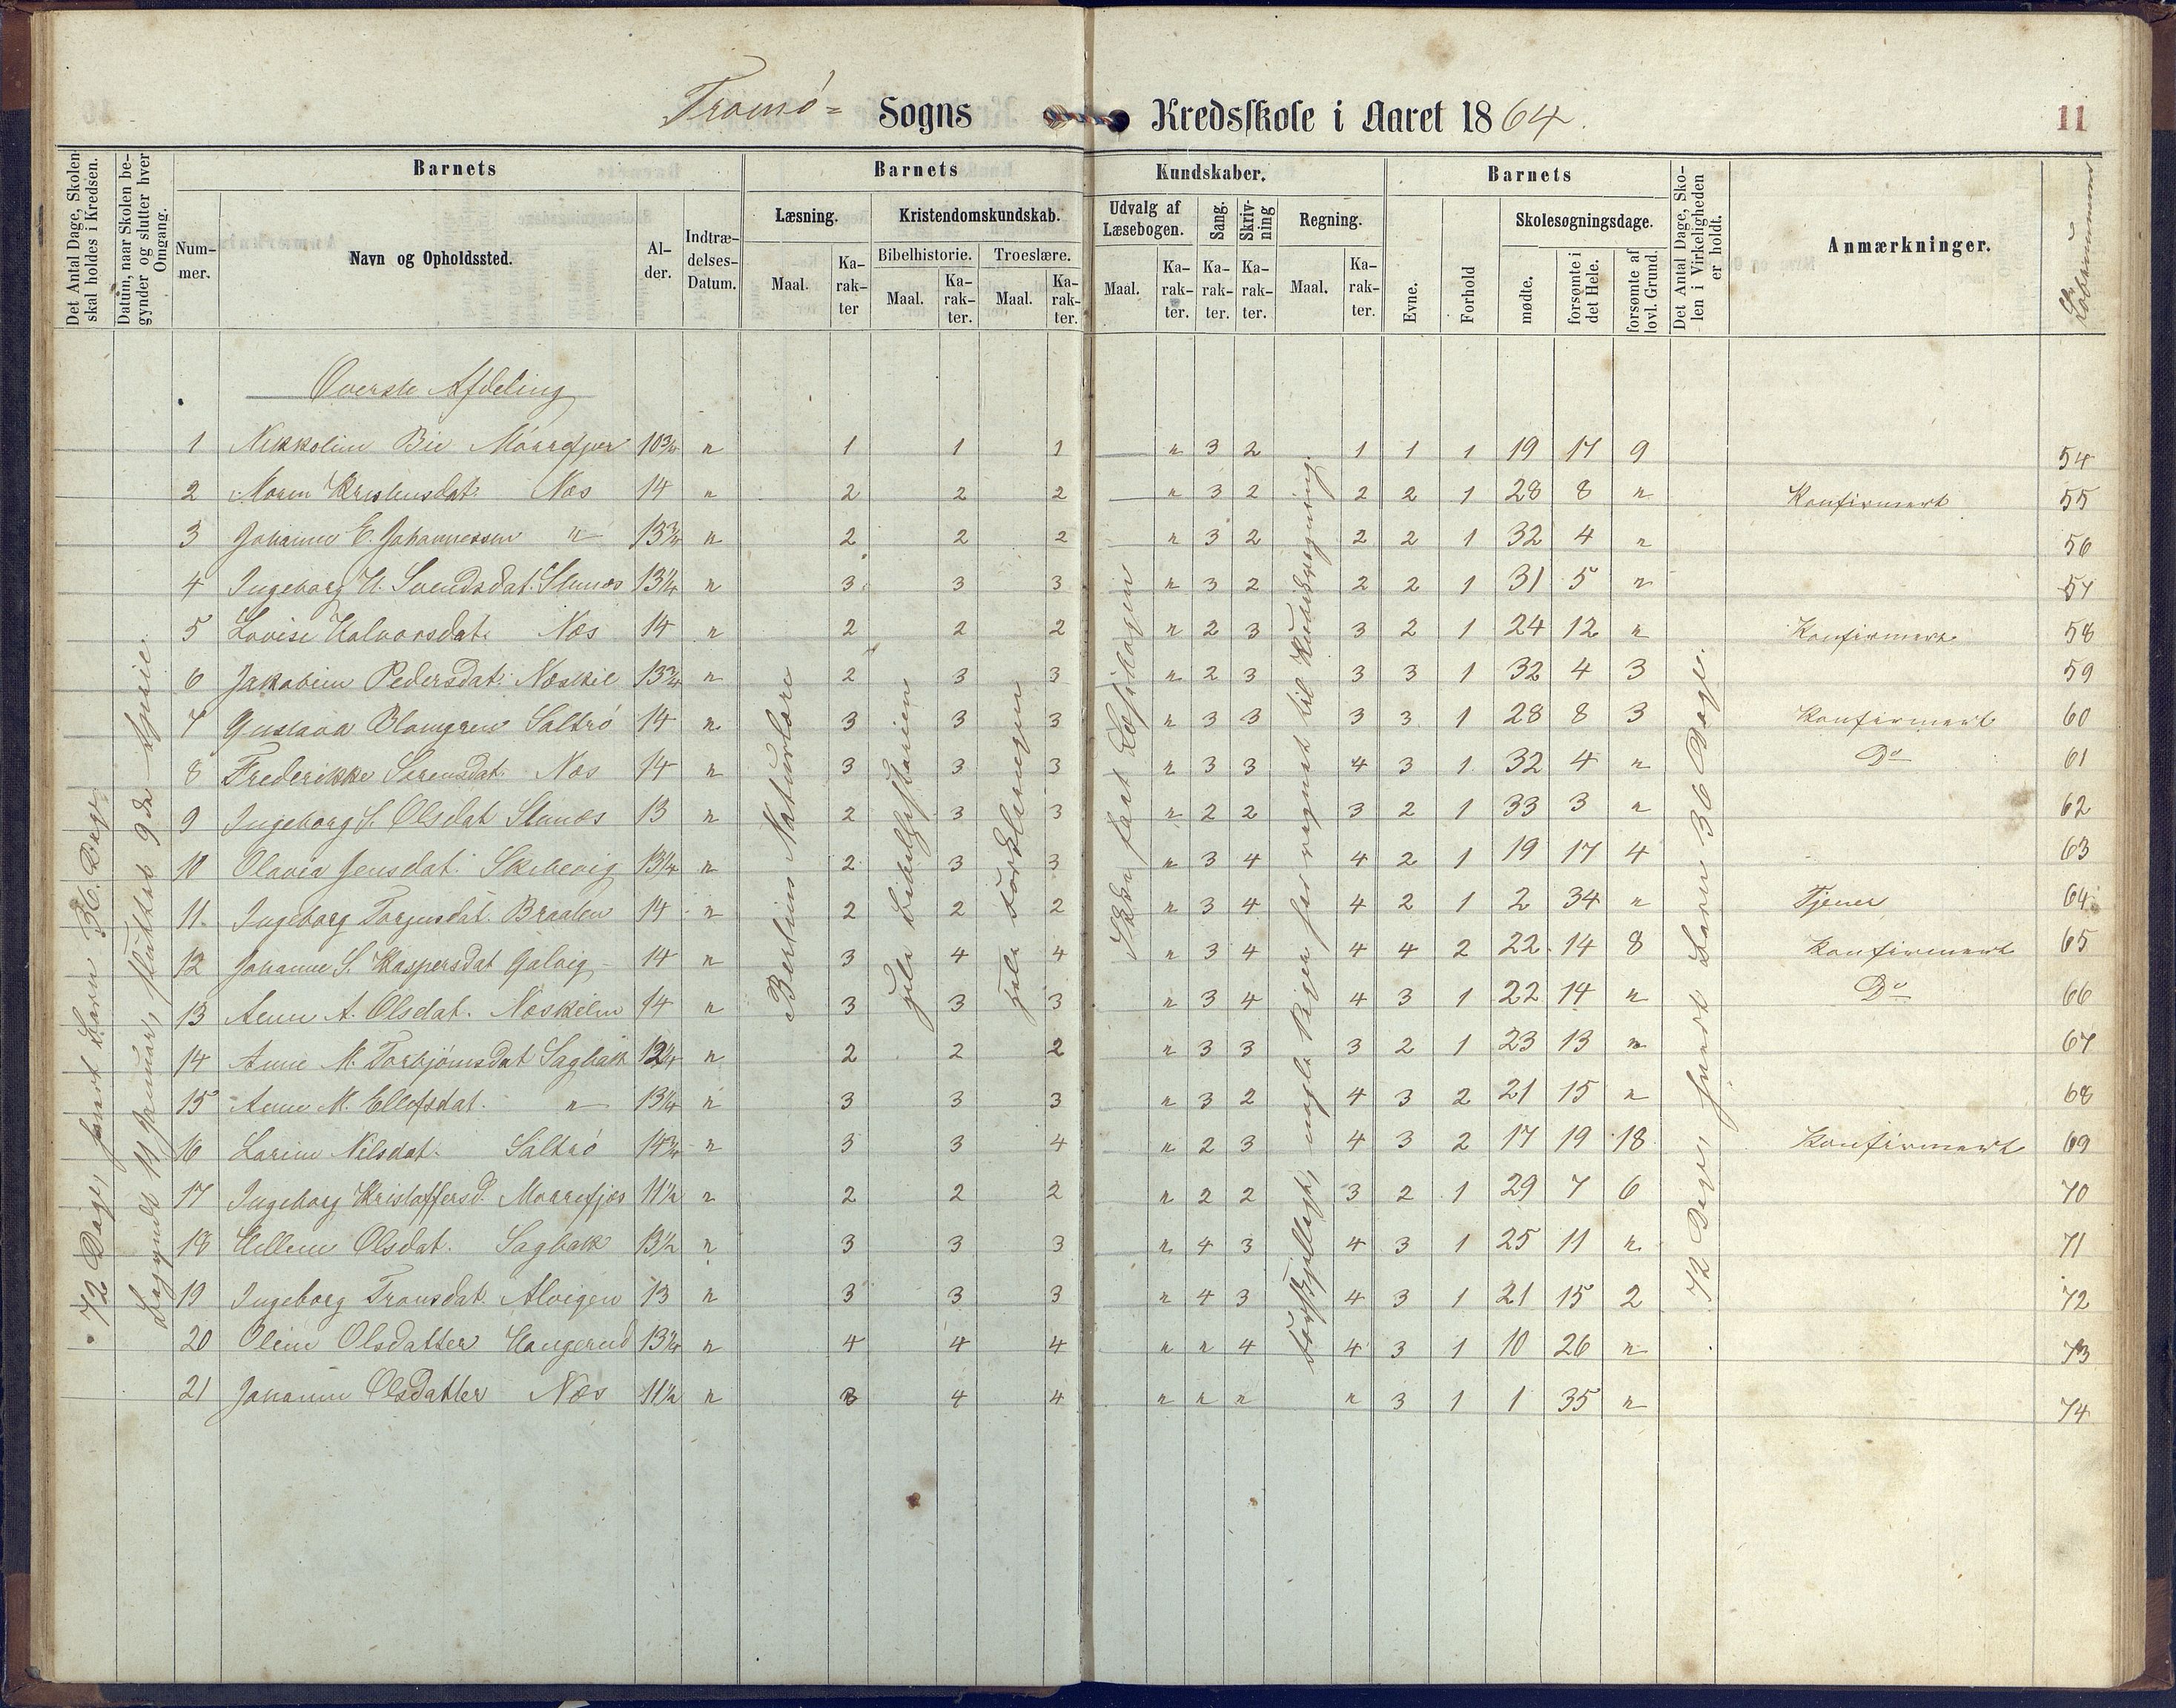 Tromø= Sogns Kredsskole i Aaret 1864. 11
Det Antal Dage, Skolen skal holdes i Kredsen.
Datum, naar Skolen begynder og slutter hver Omgang.
Barnets Barnets Kundskaber. Barnets
Nummer. Navn og Opholdssted. Alder. Indtrædelses-Datum.
Læsning. Maal. Karakter
Kristendomskundskab. Bibelhistorie. Maal. Karakter. Troeslære. Maal. Karakter.
Udvalg af Læsebogen. Maal. Karakter. Sang. Karakter. Skrivning Karakter. Regning. Maal. Karakter.
Evne. Forhold Skolesøgningsdage. mødte. forsømte i det Hele. forsømte af lovl. Grund.
Det Antal Dage, Skolen i Virkeligheden er holdt.
Anmærkninger.
Løbenummer
72 Dage, hvert Barn 36 Dage
Begyndt 11 Januar, sluttet 9de
Overste Afdeling
1 Nikkoline Bie 10¾ " 1 1 1 " 3 2 1 1 1 19 17 9 54
2 Maren Kristensdat. Næs 14 " 2 2 2 " 3 2 2 2 1 28 8 " Konfirmert 55
3 Johanne E. Johannessen " 13¾ " 2 2 2 " 3 2 2 2 1 32 4 " 56
4 Ingeborg H. Svendsdat. 13¼ " 3 3 3 " 3 2 2 2 1 31 5 " 57
5 Lovise Halvorsdat. Næs 14 " 2 2 2 " 2 3 3 2 1 24 12 " Konfirmert 58
6 Jakobine Pedersdat. Næskil 13¾ " 2 3 3 " 2 3 3 3 1 32 4 3 59
7 Gustava Blomgren Saltrø 14 " 3 3 3 " 3 3 3 3 1 28 8 3 Konfirmert 60
8 Frederikke Sørensdat. Næs 14 " 3 3 3 " 3 3 4 3 1 32 4 " Do 61
9 Ingeborg S. Olsdat 13 " 2 3 3 " 2 2 3 2 1 33 3 " 62
10 Olava Jensdat. Skibevig 13¼ " 2 3 3 " 3 4 4 2 1 19 17 4 63
11. Ingeborg Torjusdat. Braaten 14 " 2 2 2 " 3 4 4 2 1 2 34 " Tjener 64
12 Johanne S. Kaspersdat Galvig 14 " 3 4 4 " 3 4 4 4 2 22 14 8 Konfirmert 65
13 Anne A. Olsdat. Næskilen 14 " 3 3 3 " 3 4 4 3 1 22 14 " Do 66
14 Anne M. Torbjørnsdat Sagbakk 12¼ " 2 2 2 " 3 3 3 2 1 23 13 " 67
15 Anne M. Ellefsdat. " 13¼ " 3 3 3 " 3 2 4 3 2 21 15 " 68
16 Larine Nilsdat. Saltrø 14¾ " 3 3 4 " 2 3 4 3 2 17 19 18 Konfirmert 69
17 Ingeborg Kristoffersd. Marrefjær 11½ " 2 2 2 " 2 2 3 2 1 29 7 6 70
18 Hellene Olsdat. Sagbakk 13½ " 3 3 3 " 4 3 4 3 1 25 11 " 71
19 Ingeborg Tronsdat. Alvigen 13 " 3 3 3 " 4 3 4 3 1 21 15 2 72
20 Oline Olsdatter Haugerud 13¼ " 4 4 4 " " 4 4 3 1 10 26 " 73
21 Johanne Olsdatter Næs 11½ " 3 4 4 " " " " 3 1 1 35 " 74
Berlins Naturlære
hele Bibelhistorien
hele Forklaringen
Ikke havt Læsebogen
Forskjelligt, nogle Piger har regnet til Kvadratregning.
72 Dage, hvert Barn 36 Dage.